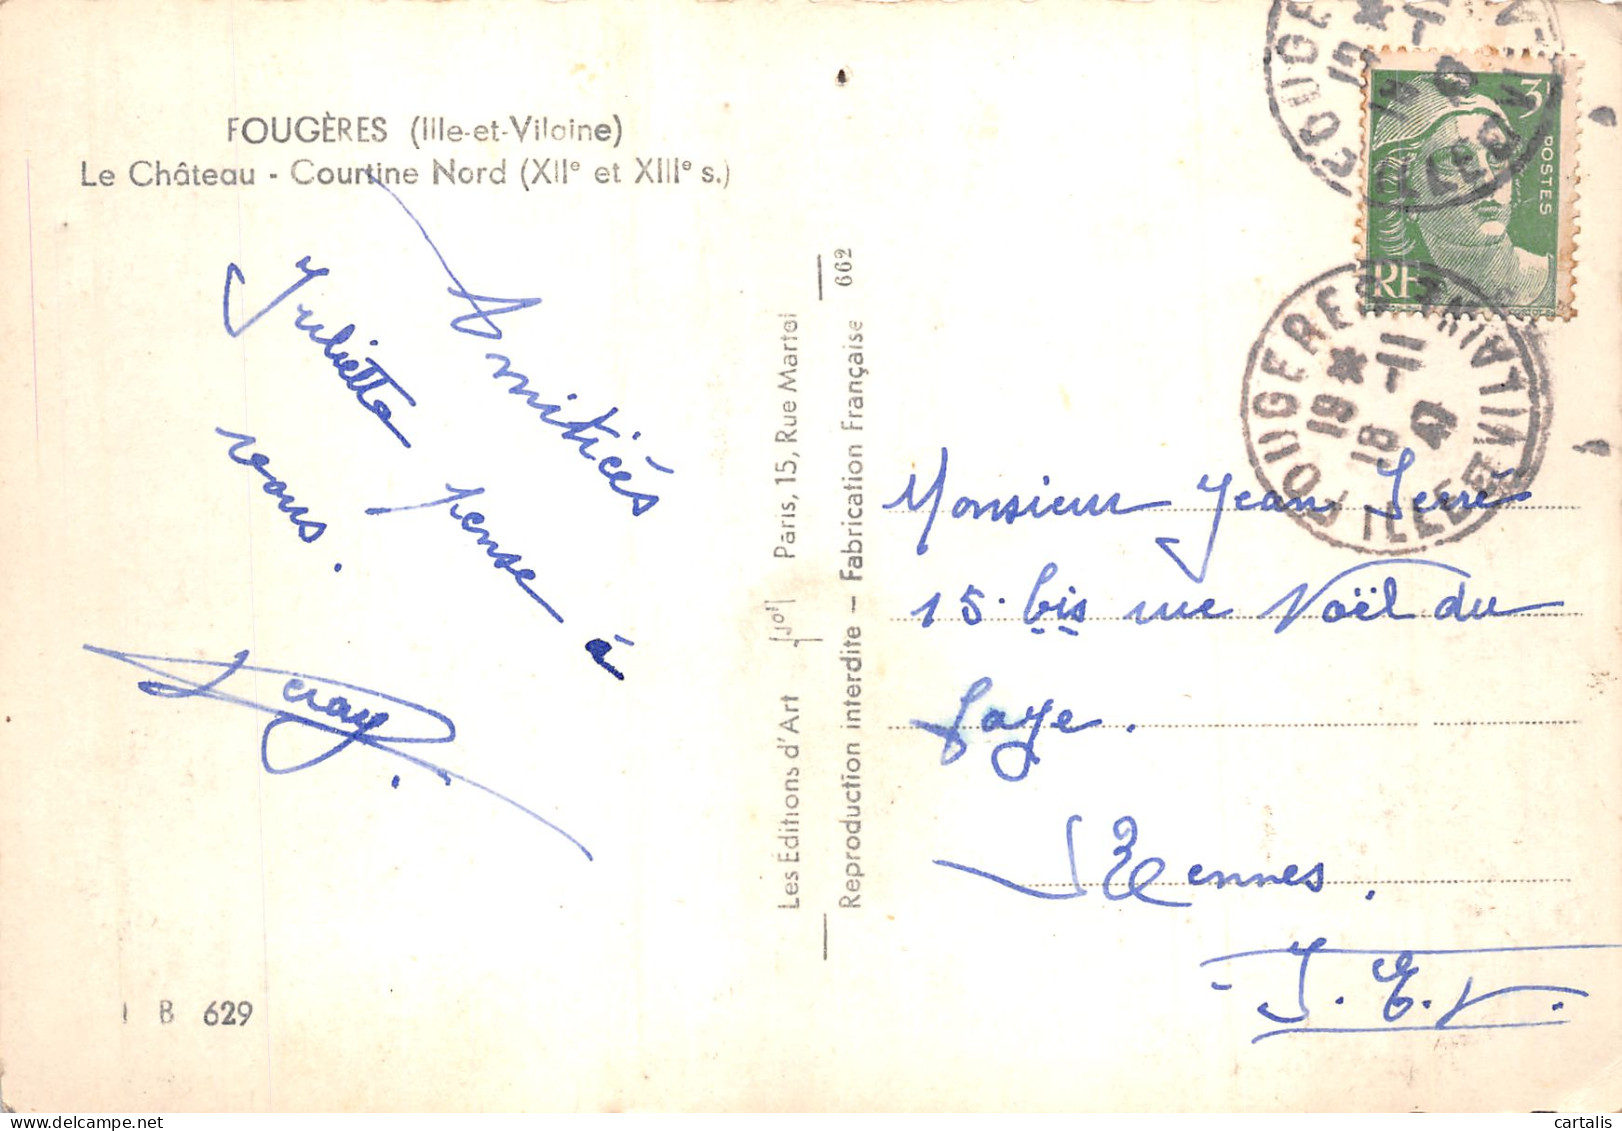 FOUGÈRES (Ille-et-Vilaine)
Le Château - Courtine Nord (XIIe et XIIIe s.)
Amitiés
Julietta pense à
vous.
I B 629
Les Éditions d'Art "Jof" Paris, 15, Rue Martel
Reproduction interdite — Fabrication Française 662
3F
POSTES
RF
FOUGERES
ILLE ET VILAINE
19 * 1-11
19 47
Monsieur Jean Serre
15 bis rue Noël du
Faye.
Rennes.
I. et V.
cartalis